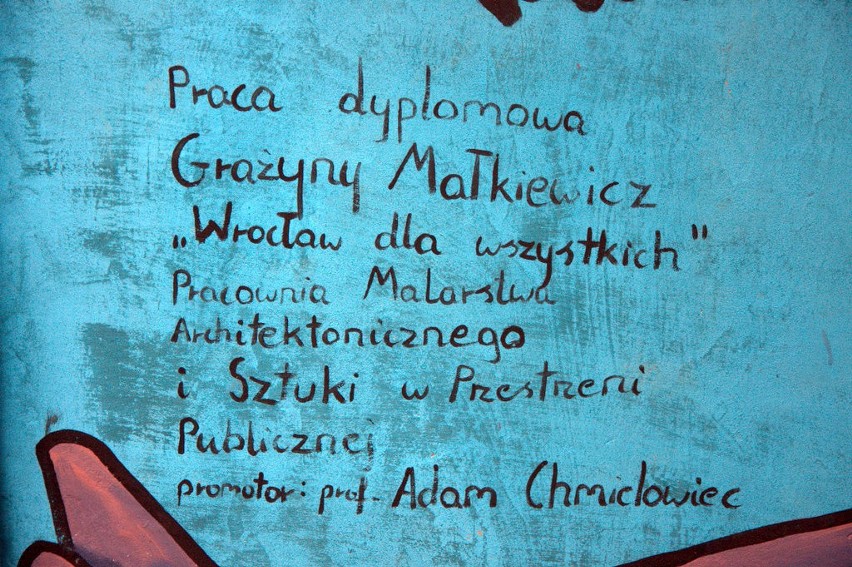 Praca dyplomowa
Grażyny Małkiewicz
„Wrocław dla wszystkich"
Pracownia Malarstwa
Architektonicznego
i Sztuki w Przestrzeni
Publicznej
promotor: prof. Adam Chmielowiec